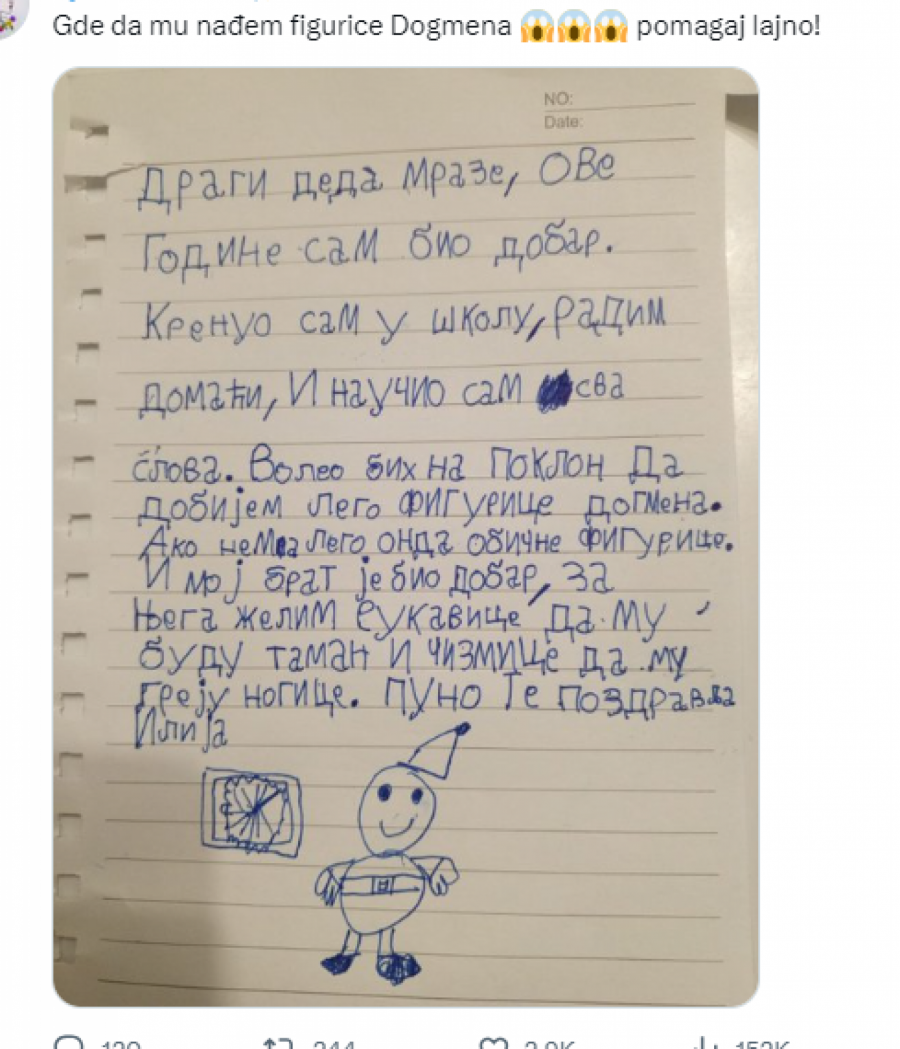 Gde da mu nađem figurice Dogmena 😱😱😱 pomagaj lajno!
NO:
Date:
Драги деда Мразе, ОВе
Године сам био добар.
Кренуо сам у школу, радим
домаћи, И научио сам сва
слова. Волео бих на Поклон Да
добијем Лего фигурице догмена.
Ако нема Лего онда обичне фигурице.
И мој брат је био добар, за
њега желим рукавице да му
буду таман и чизмице да му
греју ногице. пуно Те поздравља
Илија